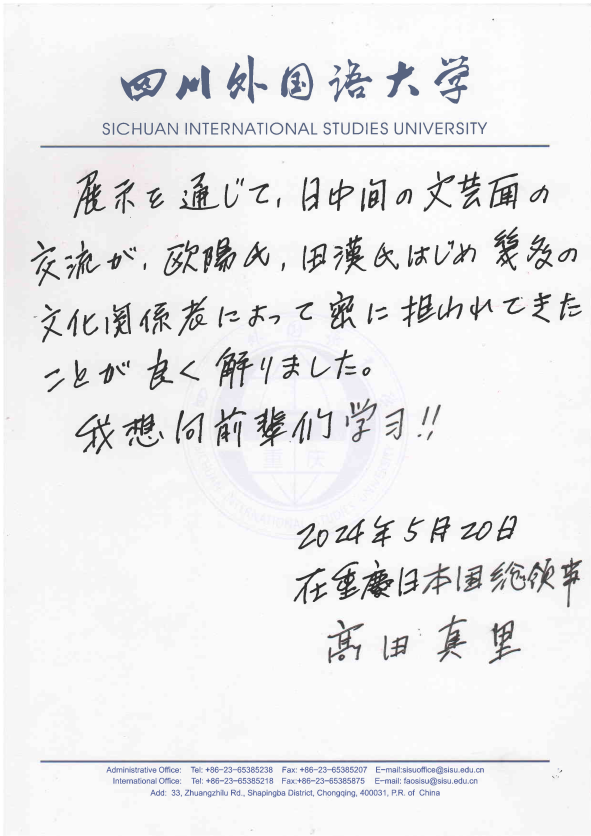 四川外国语大学
SICHUAN INTERNATIONAL STUDIES UNIVERSITY
展示を通じて、日中間の文芸面の
交流が、欧陽氏、田漢氏はじめ幾多の
文化関係者によって密に担われてきた
ことが良く解りました。
我想向前辈们学习!!
重庆
2024年5月20日
在重慶日本国総領事
高田真里
Administrative Office: Tel: +86-23-65385238 Fax: +86-23-65385207 E-mail:sisuoffice@sisu.edu.cn
International Office: Tel: +86-23-65385218 Fax:+86-23-65385875 E-mail: faosisu@sisu.edu.cn
Add: 33, Zhuangzhilu Rd., Shapingba District, Chongqing, 400031, P.R. of China